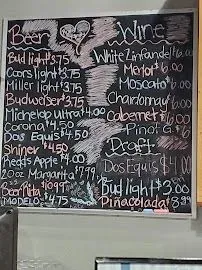 Beer
Bud light $3.75
Coors light $3.75
Miller light $3.75
Budweiser $3.75
Michelop ultra $4.00
Corona $4.50
Dos Equis $4.50
Shiner $4.50
Redd's Apple $4.00
20oz Margarita $7.99
BeerRita $10.99
MODELO $4.75
Wine
White Zinfandel $6.00
Merlot $6.00
Moscato $6.00
Chardonnay $6.00
Cabernet $6.00
Pinot G. $6
Draft
Dos Equis $4.00
Bud light $3.00
Piñacolada $8.39